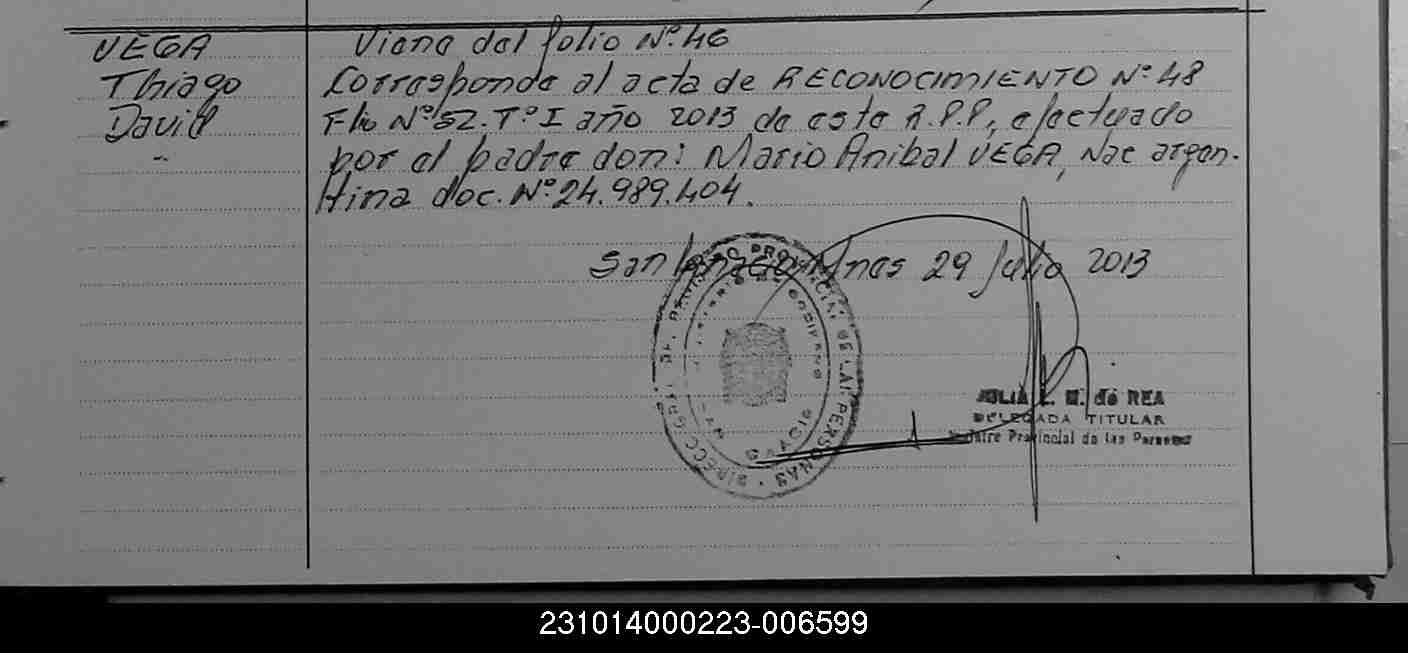 VEGA
Thiago
David
Viene del folio Nº 46
Corresponde al acta de RECONOCIMIENTO Nº 48
Flio Nº 52. Tº I año 2013 de este R.P.P, efectuado
por el padre don: Mario Anibal VEGA, Nac argen-
tina doc. Nº 24.989.404.
San 29 Julio 2013
PROVINCIAL DE LAS PERSONAS
JULIA E. M. de REA
DELEGADA TITULAR
Provincial de las Personas
231014000223-006599